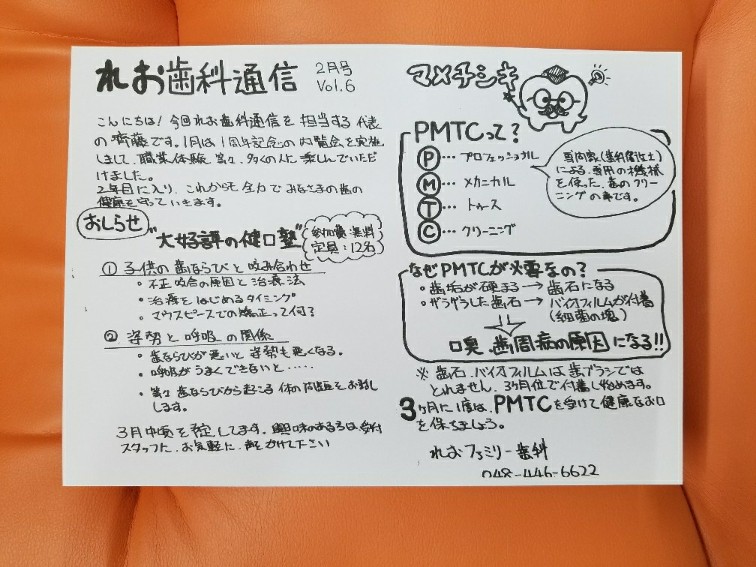 れお歯科通信 2月号 Vol.6
こんにちは！今回れお歯科通信を担当する代表
の齊藤です。1月は1周年記念の内覧会を実施
しまして、職業体験等々、多くの人に楽しんでいただ
けました。
2年目に入り、これからも全力でみなさまの歯の
健康を守っていきます。
おしらせ
"大好評の健口塾"
参加費：無料
定員：12名
① 子供の歯ならびと咬み合わせ
・不正咬合の原因と治療法
・治療をはじめるタイミング
・マウスピースでの矯正って何？
② 姿勢と呼吸の関係
・歯ならびが悪いと姿勢も悪くなる。
・呼吸がうまくできないと……
・等々歯ならびから起こる体の問題をお話し
します。
3月中頃を予定してます。興味のある方は受付
スタッフに、お気軽に、声をかけて下さい
マメチシキ
PMTCって？
P … プロフェッショナル
M … メカニカル
T … トゥース
C … クリーニング
専門家(歯科衛生士)
による、専用の機械
を使った、歯のクリー
ニングの事です。
なぜPMTCが必要なの？
・歯垢が硬まる→歯石になる
・ザラザラした歯石→バイオフィルムが付着
(細菌の塊)
口臭、歯周病の原因になる!!
※歯石、バイオフィルムは歯ブラシでは
とれません、3ヶ月位で付着し始めます。
3ヶ月に1度は、PMTCを受けて健康なお口
を保ちましょう。
れおファミリー歯科
048-446-6622